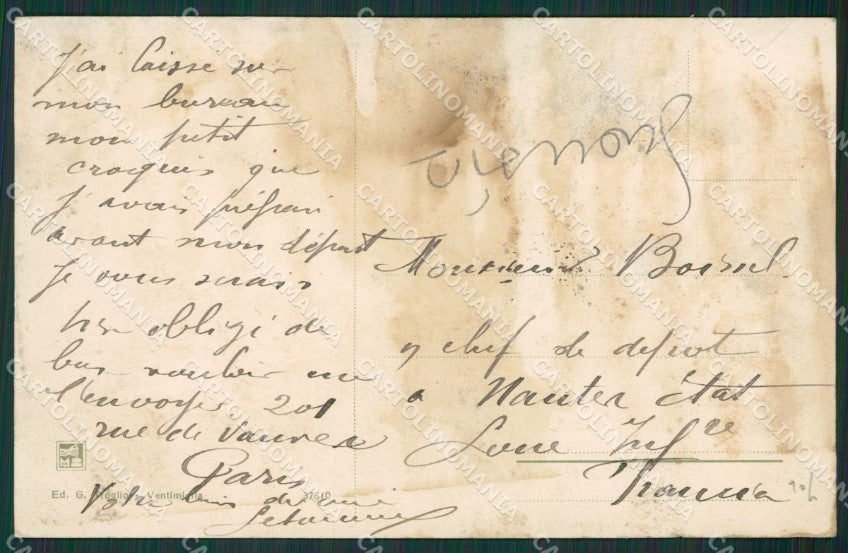 J'ai laissé sur
mon bureau
mon petit
croquis que
j'avais préparé
avant mon départ
Je vous serais
bien obligé de
bien vouloir me
l'envoyer 201
rue de Vanves
Paris
Votre bien
Monsieur Boissel
chef de dépôt
a Nantes État
Loire Infre
France
Ed. G. Ventimiglia 37610
CARTOLINOMANIA